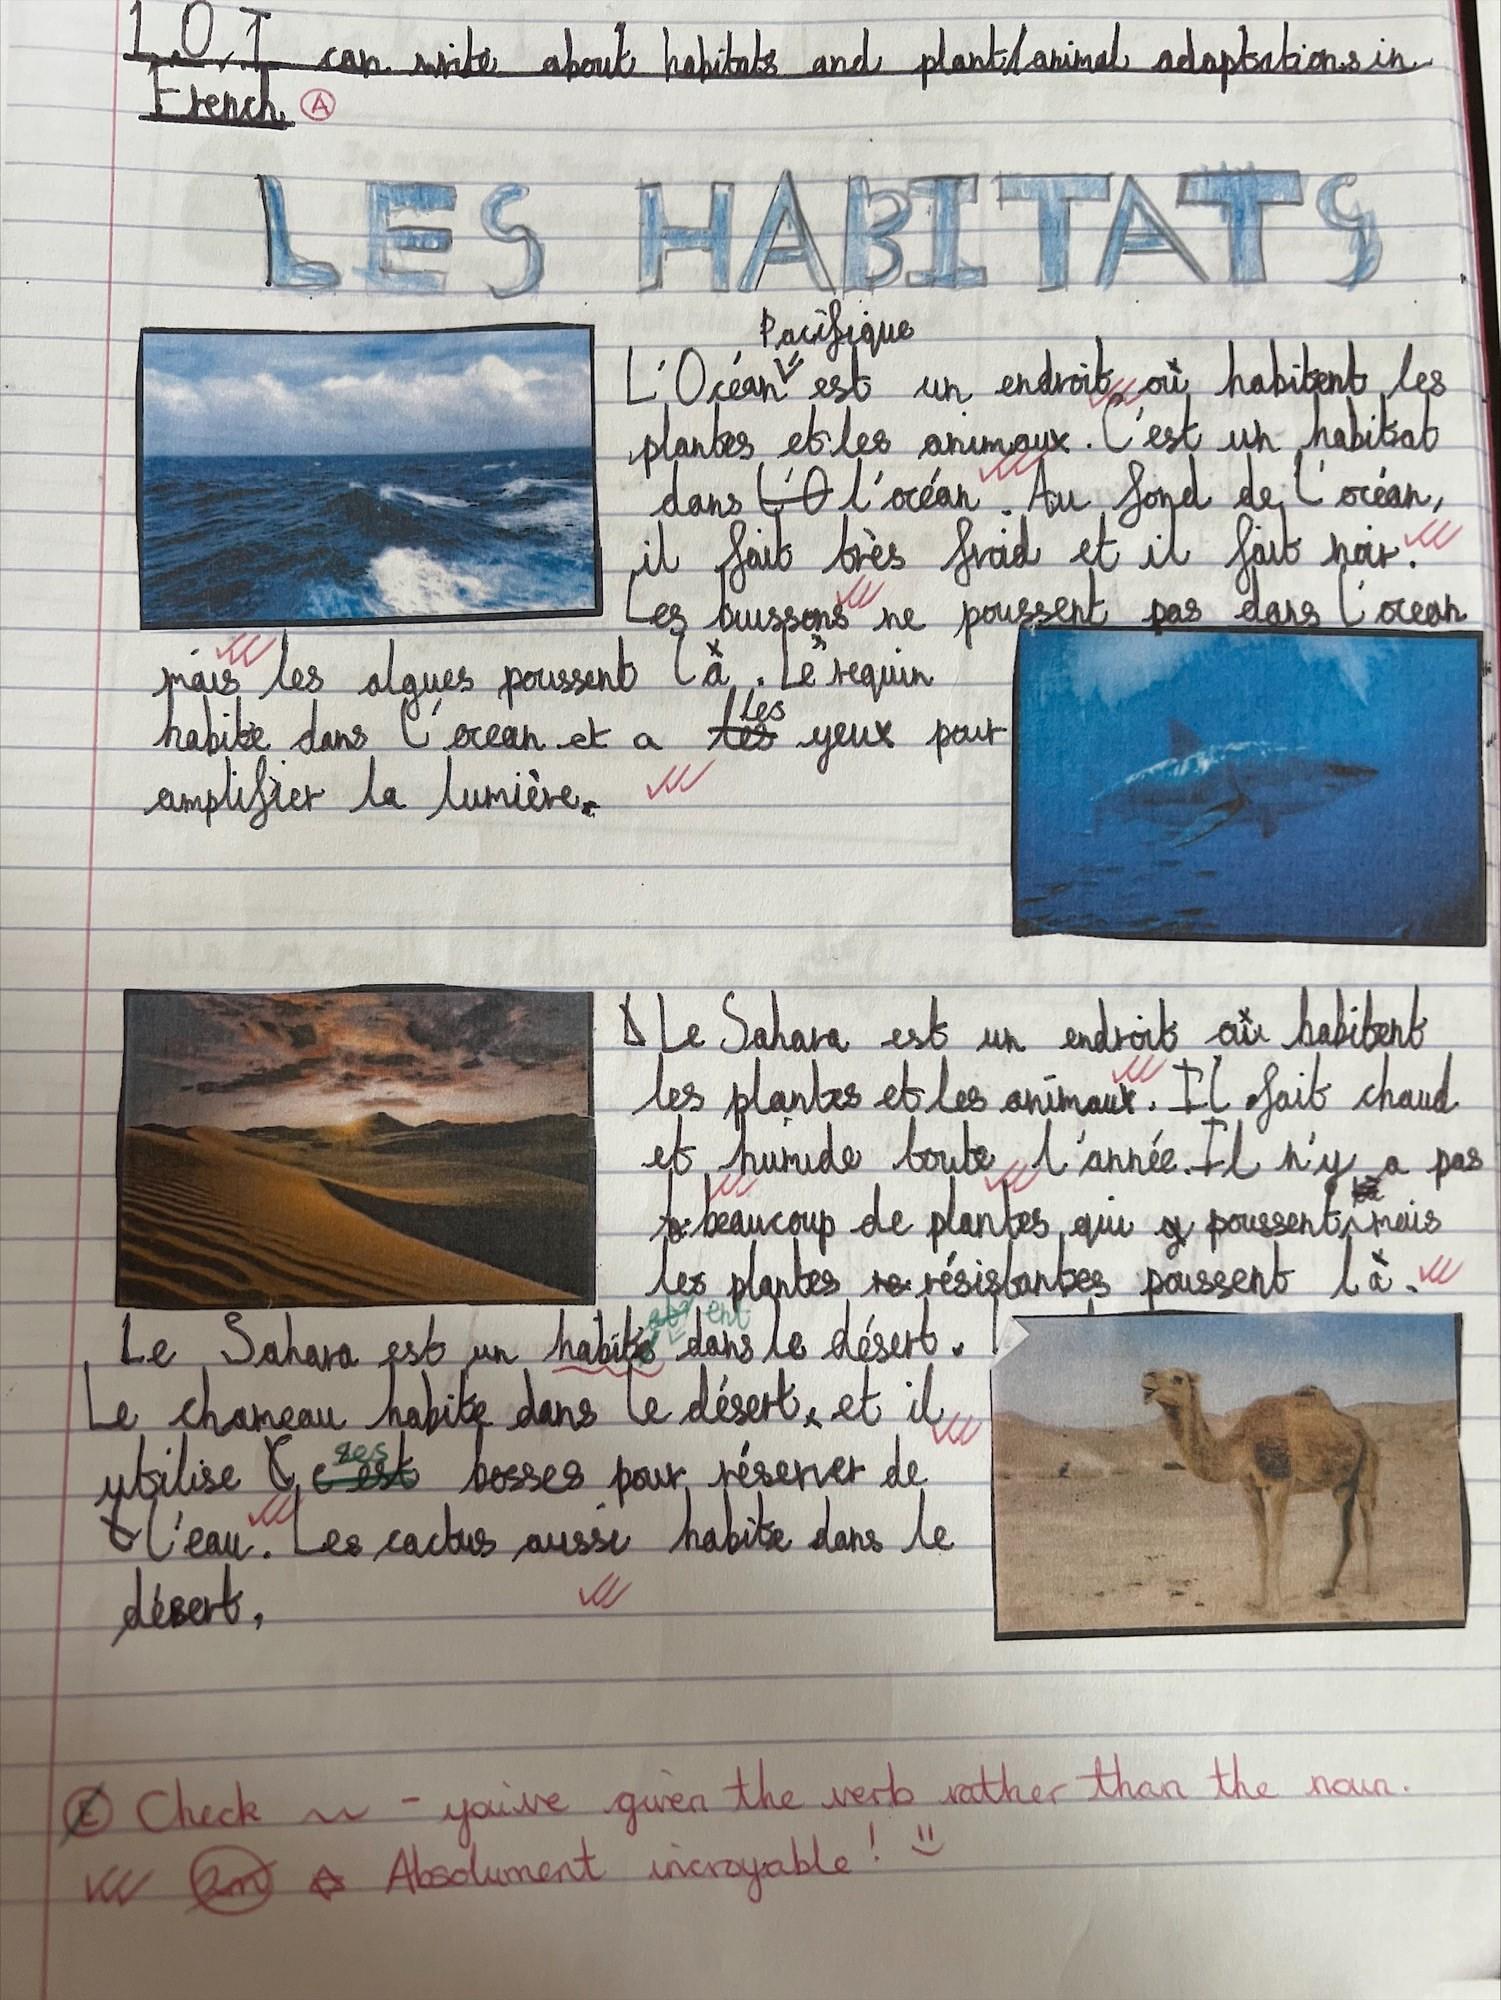 L.O.I can write about habitats and plant/animal adaptations in
French A
LES HABITATS
Pacifique
L'Océan est un endroit, où habitent les
plantes et les animaux. C'est un habitat
dans L'O l'océan. Au fond de l'océan,
il fait très froid et il fait noir.
Les buissons ne poussent pas dans l'ocean
mais les algues poussent là. Le requin
habite dans l'ocean et a les
les yeux pour
amplifier la lumière.
Le Sahara est un endroit où habitent
les plantes et les animaux. Il fait chaud
et humide toute l'année. Il n'y a pas
beaucoup de plantes qui poussent, mais
les plantes re résistantes poussent là.
ent
Le Sahara est un habite dans le désert.
Le chameau habite dans le désert, et il
ses
utilise c'est bosses pour réserver de
l'eau. Les cactus aussi habite dans le
désert.
E Check ~ - you've given the verb rather than the noun.
Absolument incroyable!